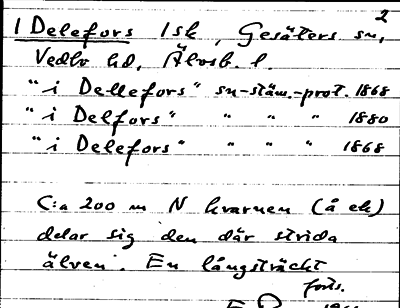 2
1 Delefors 1sk, Gesäters sn,
Vedbo hd, Älvsb. l.
"i Dellefors" sn-stäm.-prot. 1868
"i Delfors" " " " 1880
"i Delefors" " " " 1868
C:a 200 m N kvarnen (å ek)
delar sig den där strida
älven. En långsträckt
forts.